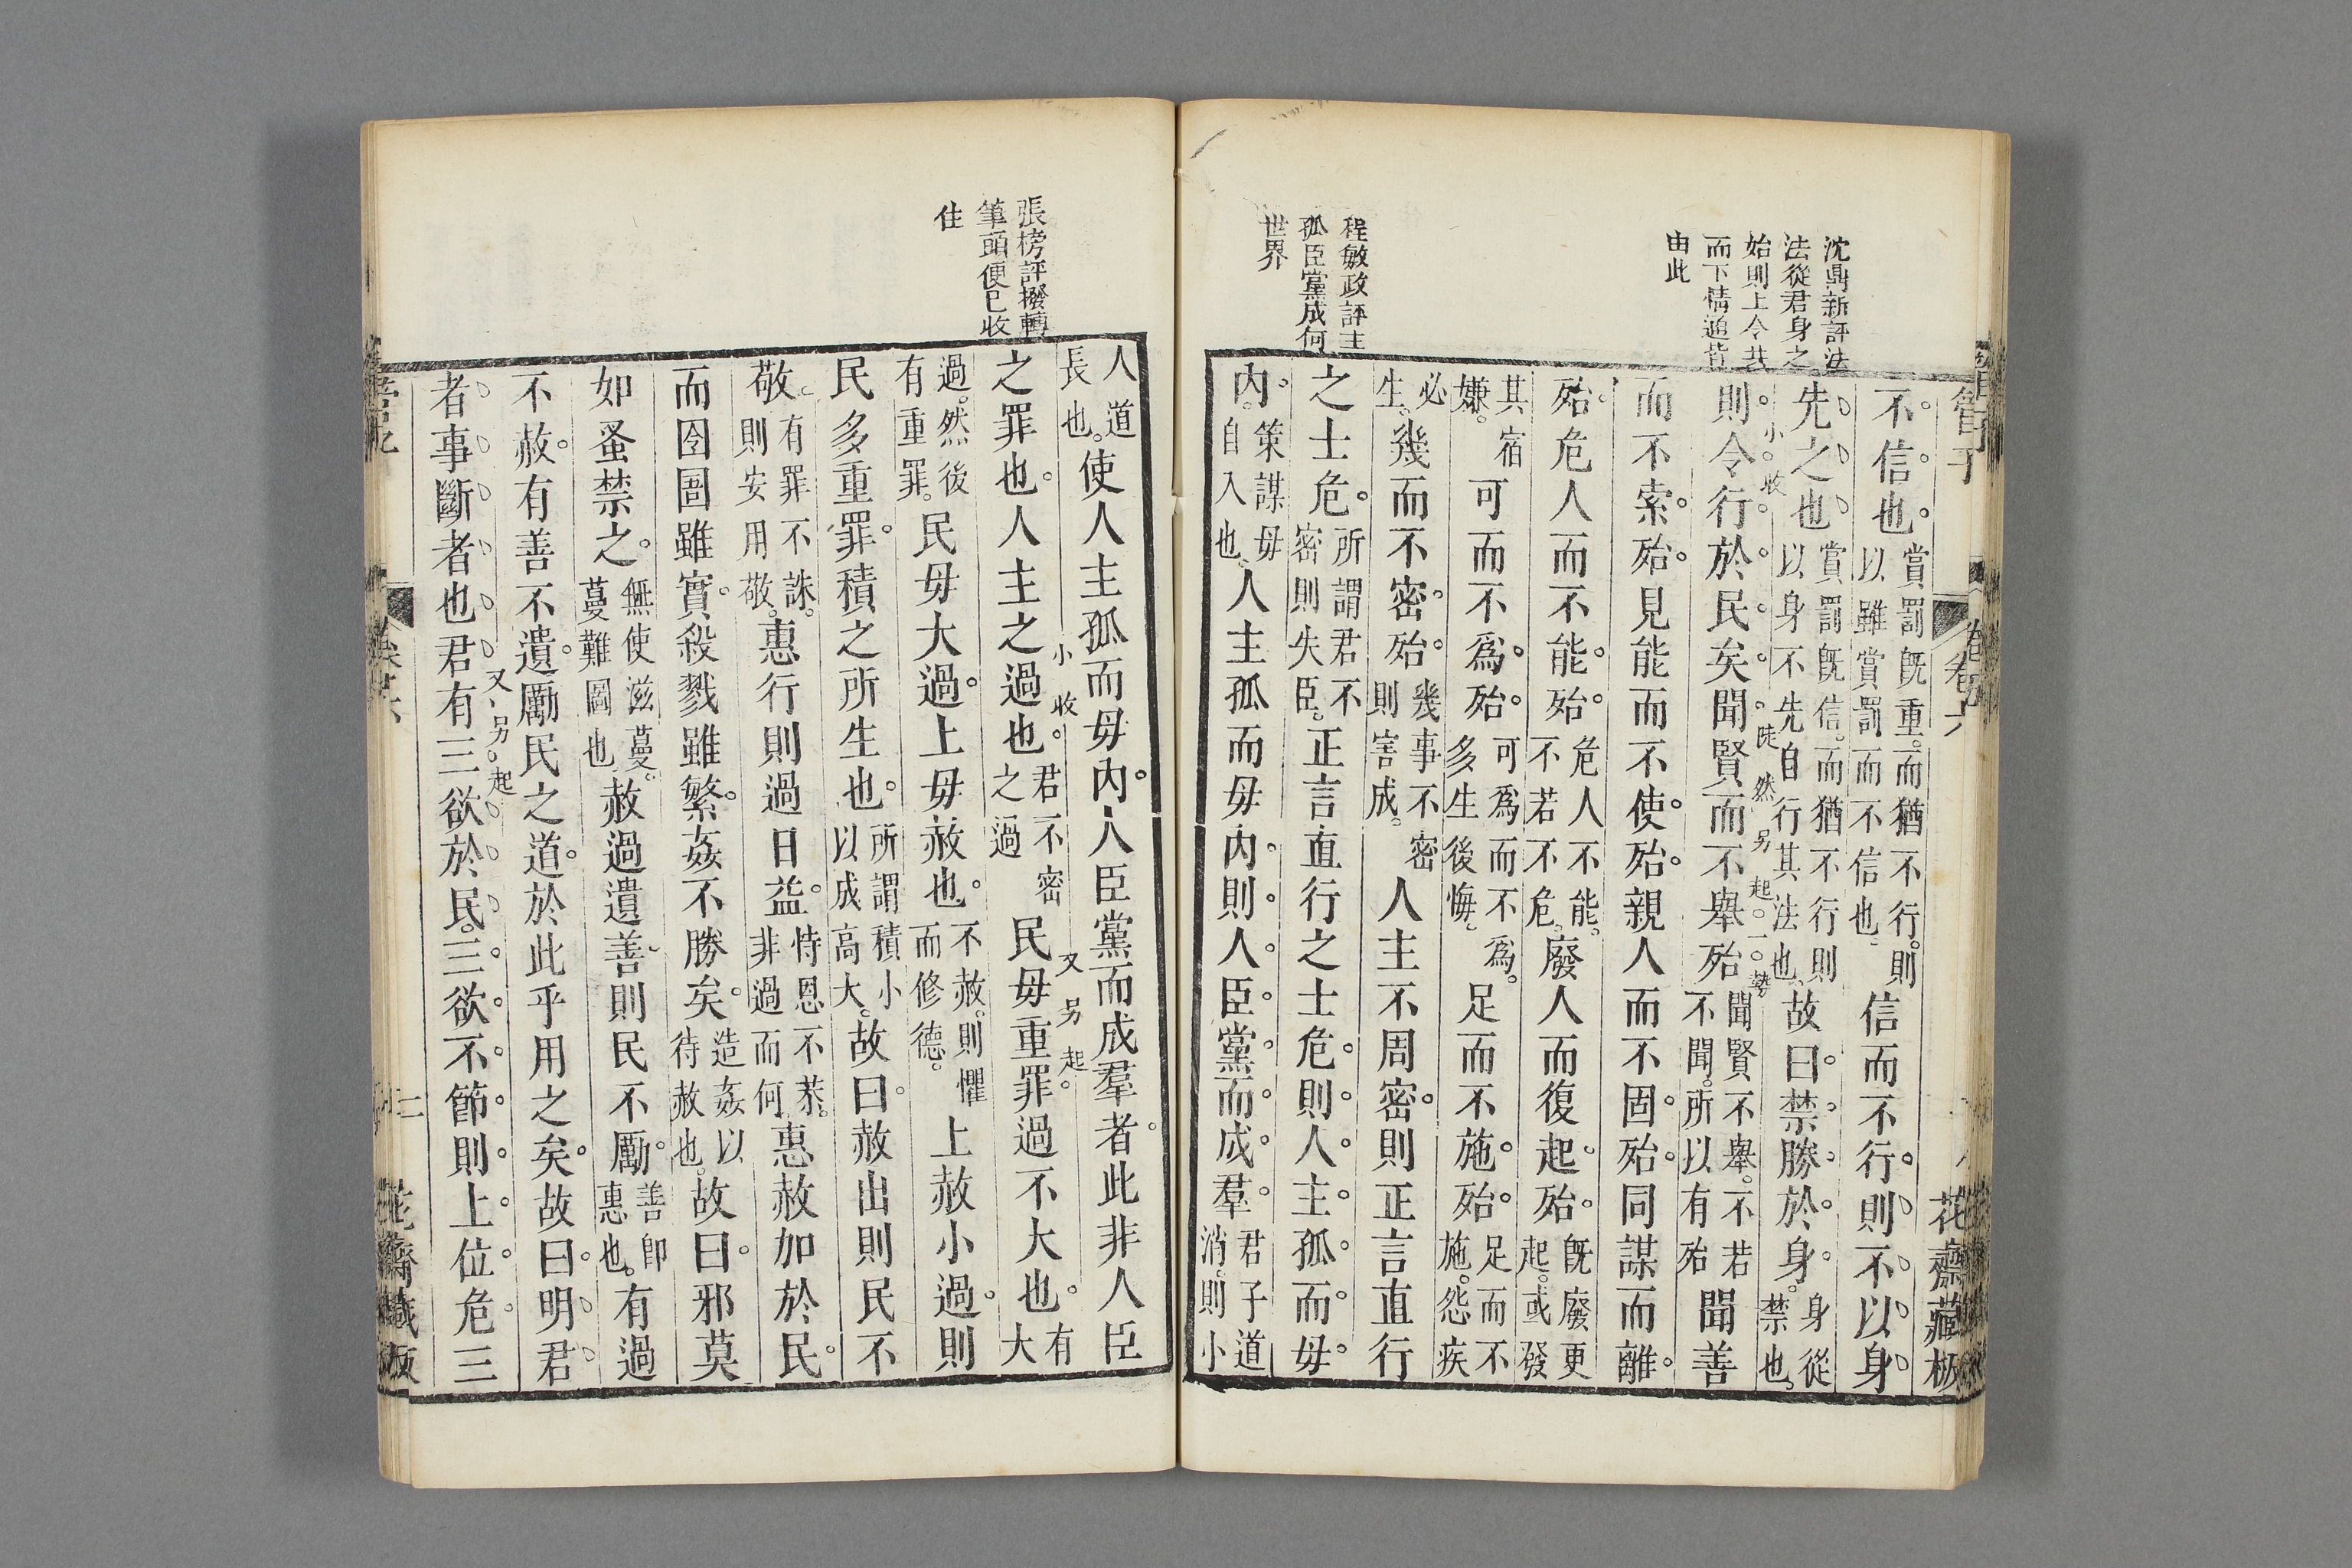 管子 卷六 花齋藏板
沈鼎新評法
法從君身之
始則上令共
而下情
由此
程敏政評主
孤臣黨成何
世界
不信也賞罰既重而猶不行則以雖賞罰而不信也信而不行則不以身
先之也賞罰既信而猶不行則以身不先自行其法也故曰禁勝於身身從禁也
小收
則令行於民矣聞賢而不舉殆聞賢不舉不若不聞所以有殆聞善
陡然另起一勢
而不索殆見能而不使殆親人而不固殆同謀而離
殆危人而不能殆危人不能不若不危廢人而復起殆既廢更起或發
其宿嫌可而不爲殆可爲而不爲多生後悔足而不施殆足而不施怨疾
必生幾而不密殆幾事不密則害成人主不周密則正言直行
之士危所謂君不密則失臣正言直行之士危則人主孤而毋
內策謀毋自入也人主孤而毋內則人臣黨而成羣君子道消則小
張榜評撥轉
筆頭便已收
住
人道長也使人主孤而毋內人臣黨而成羣者此非人臣
小收
又另起
之罪也人主之過也君不密之過民毋重罪過不大也有大
過然後有重罪民毋大過上毋赦也不赦則懼而修德上赦小過則
民多重罪積之所生也所謂積小以成高大故曰赦出則民不
敬有罪不誅則安用敬惠行則過日益恃恩不恭非過而何惠赦加於民
而囹圄雖實殺戮雖繁姦不勝矣造姦以待赦也故曰邪莫
如蚤禁之無使滋蔓蔓難圖也赦過遺善則民不勵善卽惠也有過
不赦有善不遺勵民之道於此乎用之矣故曰明君
又另起
者事斷者也君有三欲於民三欲不節則上位危三